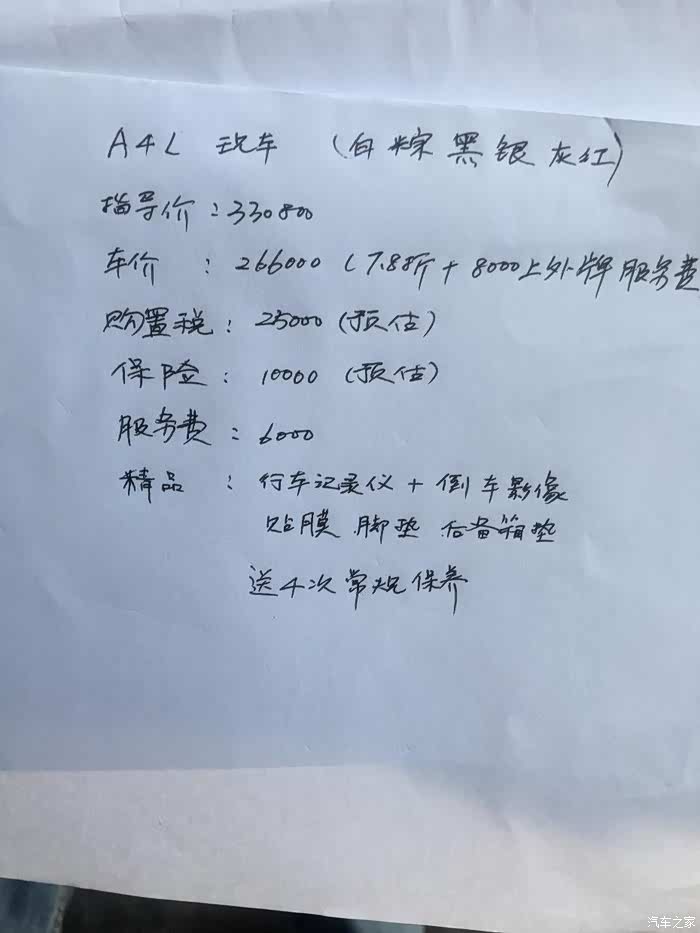 A4L 现车 (白棕黑银灰红)
指导价:330800
车价:266000 (7.8折+8000上外牌服务费
购置税:25000(预估)
保险:10000(预估)
服务费:6000
精品:行车记录仪+倒车影像
贴膜 脚垫 后备箱垫
送4次常规保养
汽车之家